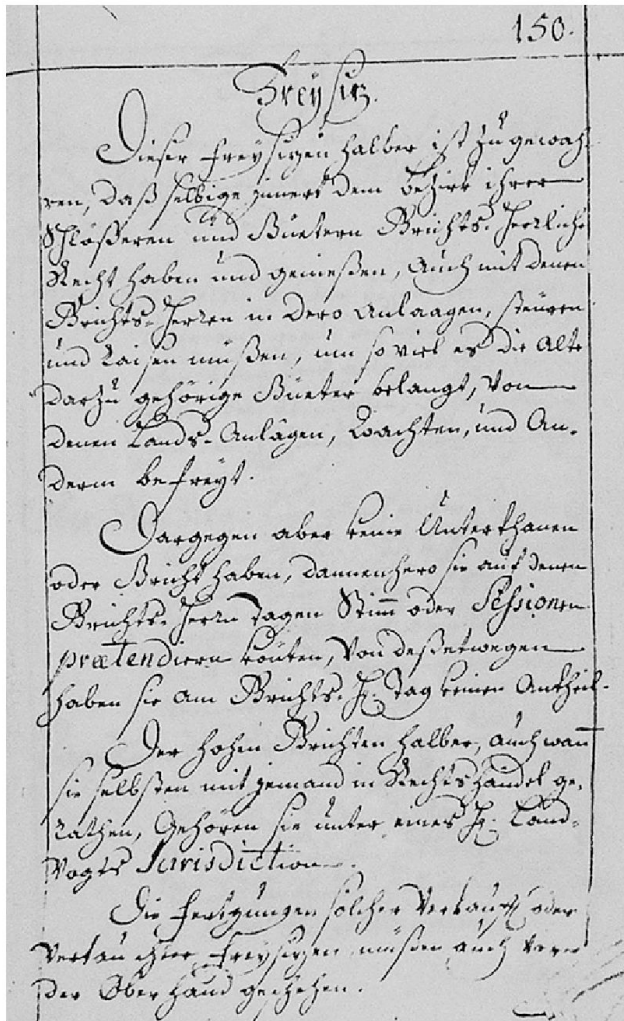 150.
Freysitz.
Dieser Freysitzen halber ist zu gewah-
ren, daß selbige innert dem bezirk ihrer
Schlösseren und Güetern Grichts-Herrliche
Recht haben und geniessen, Auch mit denen
Grichts-Herren in dero Anlaagen, steüren
und Raisen müßen, um so viel es die Alte
darzu gehörige Güeter belangt, Von
denen Lands-Anlagen, Wachten, und An-
derm befreyt.
Dargegen aber keine Unterthanen
oder Gricht haben, dannenhero sie auf denen
Grichts-Herrn Tagen Stimm oder Sessionen
prætendiern könten, Von deßetwegen
haben sie am Grichts-H. Tag keinen Antheil.
Der hohen Grichten halber, auch wann
sie selbsten mit jemand in Rechtshandel ge-
rathen, Gehören sie unter eines H. Land-
Vogts Jurisdiction.
Die Fertigungen solcher Verkaufft oder
Vertauschter Freysitzen müßen auch Vor
der Oberhand geschehen.